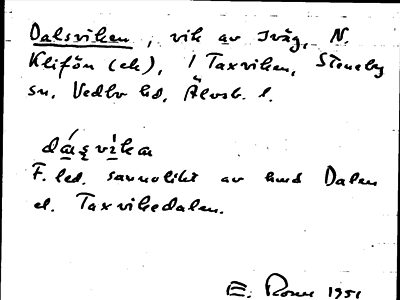 Dalsviken, vik av Iväg, N.
Klifön (ek), i Taxviken, Steneby
sn, Vedbo hd, Älvsb. l.
dásvìka
F. led. sannolikt av hmd Dalen
el. Taxvikedalen.
E. 1951